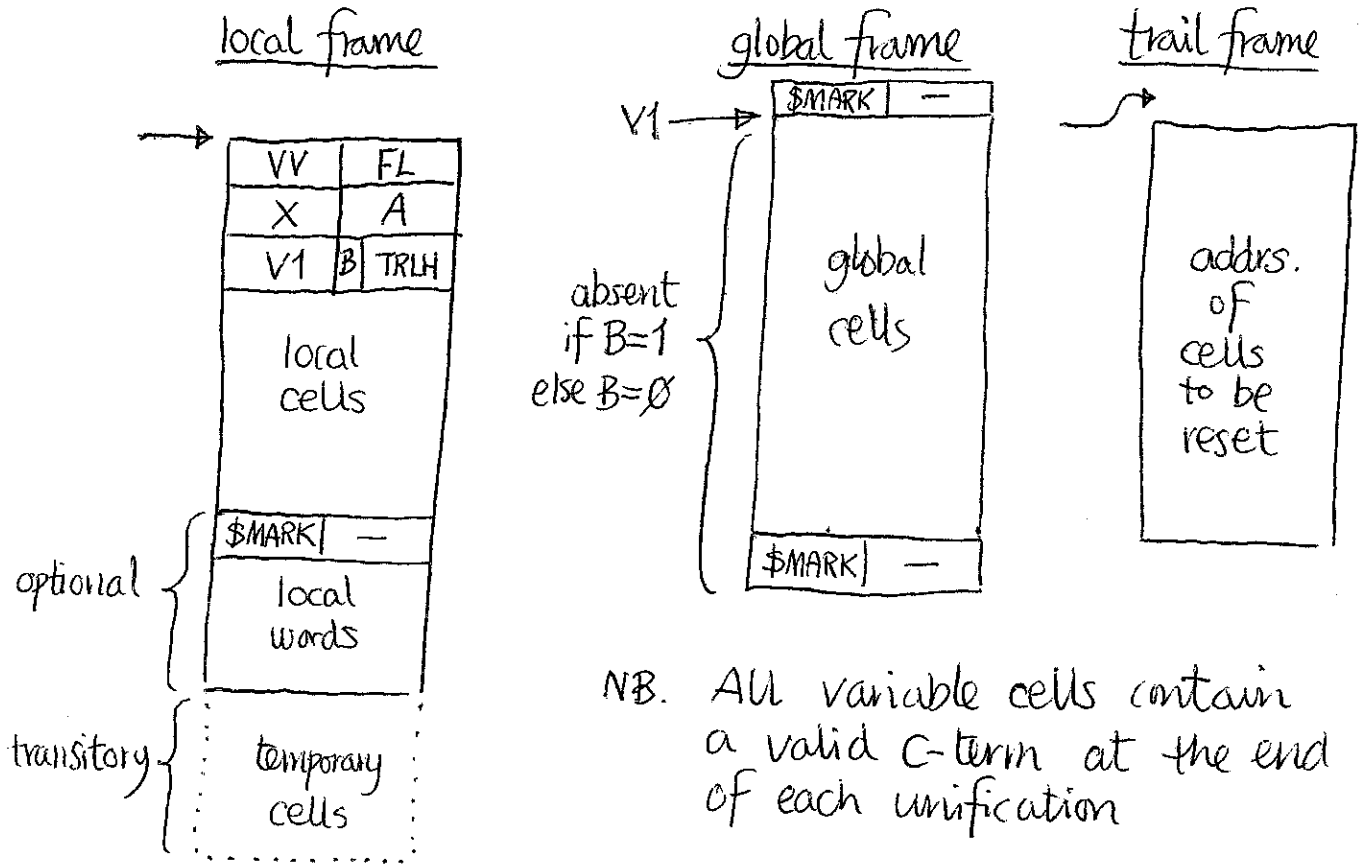 local frame
VV FL
X A
V1 B TRLH
local
cells
optional
$MARK —
local
words
transitory
temporary
cells
global frame
$MARK —
V1
absent
if B=1
else B=Ø
global
cells
$MARK —
trail frame
addrs.
of
cells
to be
reset
NB. All variable cells contain
a valid C-term at the end
of each unification